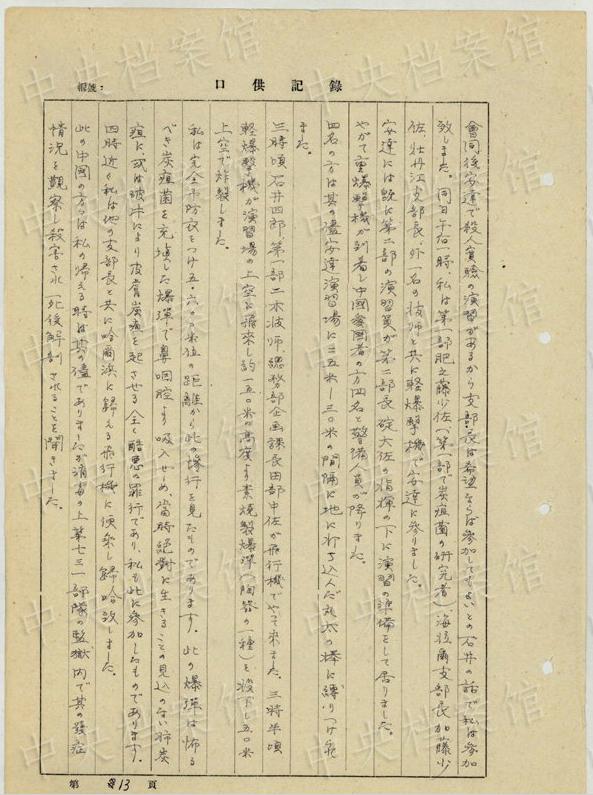 口供記錄
編號：
會同後安達で殺人實驗の演習があるから支部長は希望ならば參加してもよいとの石井の話で私は參加
致しました。同日午后一時、私は第一部肥之藤少佐（第一部で炭疽菌の研究者）海拉爾支部長加藤少
佐、牡丹江支部長、外一名の技師と共に軽爆撃機で安達に參りました。
安達には既に第二部の演習員が第二部長碇大佐の指揮の下に演習の準備をして居りました。
やがて重爆撃機が到着し中國愛國者の方四名と警備人員が降りました。
四名の方は其の儘安達演習場に二五米—三〇米の間隔に地に打ち込んだ丸太の棒に縛りつけられ
ました。
三時頃石井四郎、第一部二木技師、總務部企画課長田部中佐が飛行機でやって来ました。三時半頃
軽爆撃機が演習場の上空に飛来し約一五〇米の高度より素焼製爆弾（陶器の一種）を投下し五〇米
上空で炸裂しました。
私は完全な防疫衣をつけ五・六〇〇米位の距離から此の惨行を見たものであります。此の爆弾は怖る
べき炭疽菌を充填した爆弾で鼻咽腔より吸入せしめ、當時絶對に生きることの見込のない肺炭
疽に、或は破片により皮膚炭疽を起させる全く酷悪の罪行であり、私も此に參加したものであります。
四時近く私は他の支部長と共に哈爾浜に歸える飛行機に便乗し歸哈致しました。
此の中國の方々は私の帰える時は其の儘でありましたが消毒の上第七三一部隊の監獄内で其の發症
情況を觀察し殺害され、死後解剖されることを聞きました。
第 13 頁
中央档案馆